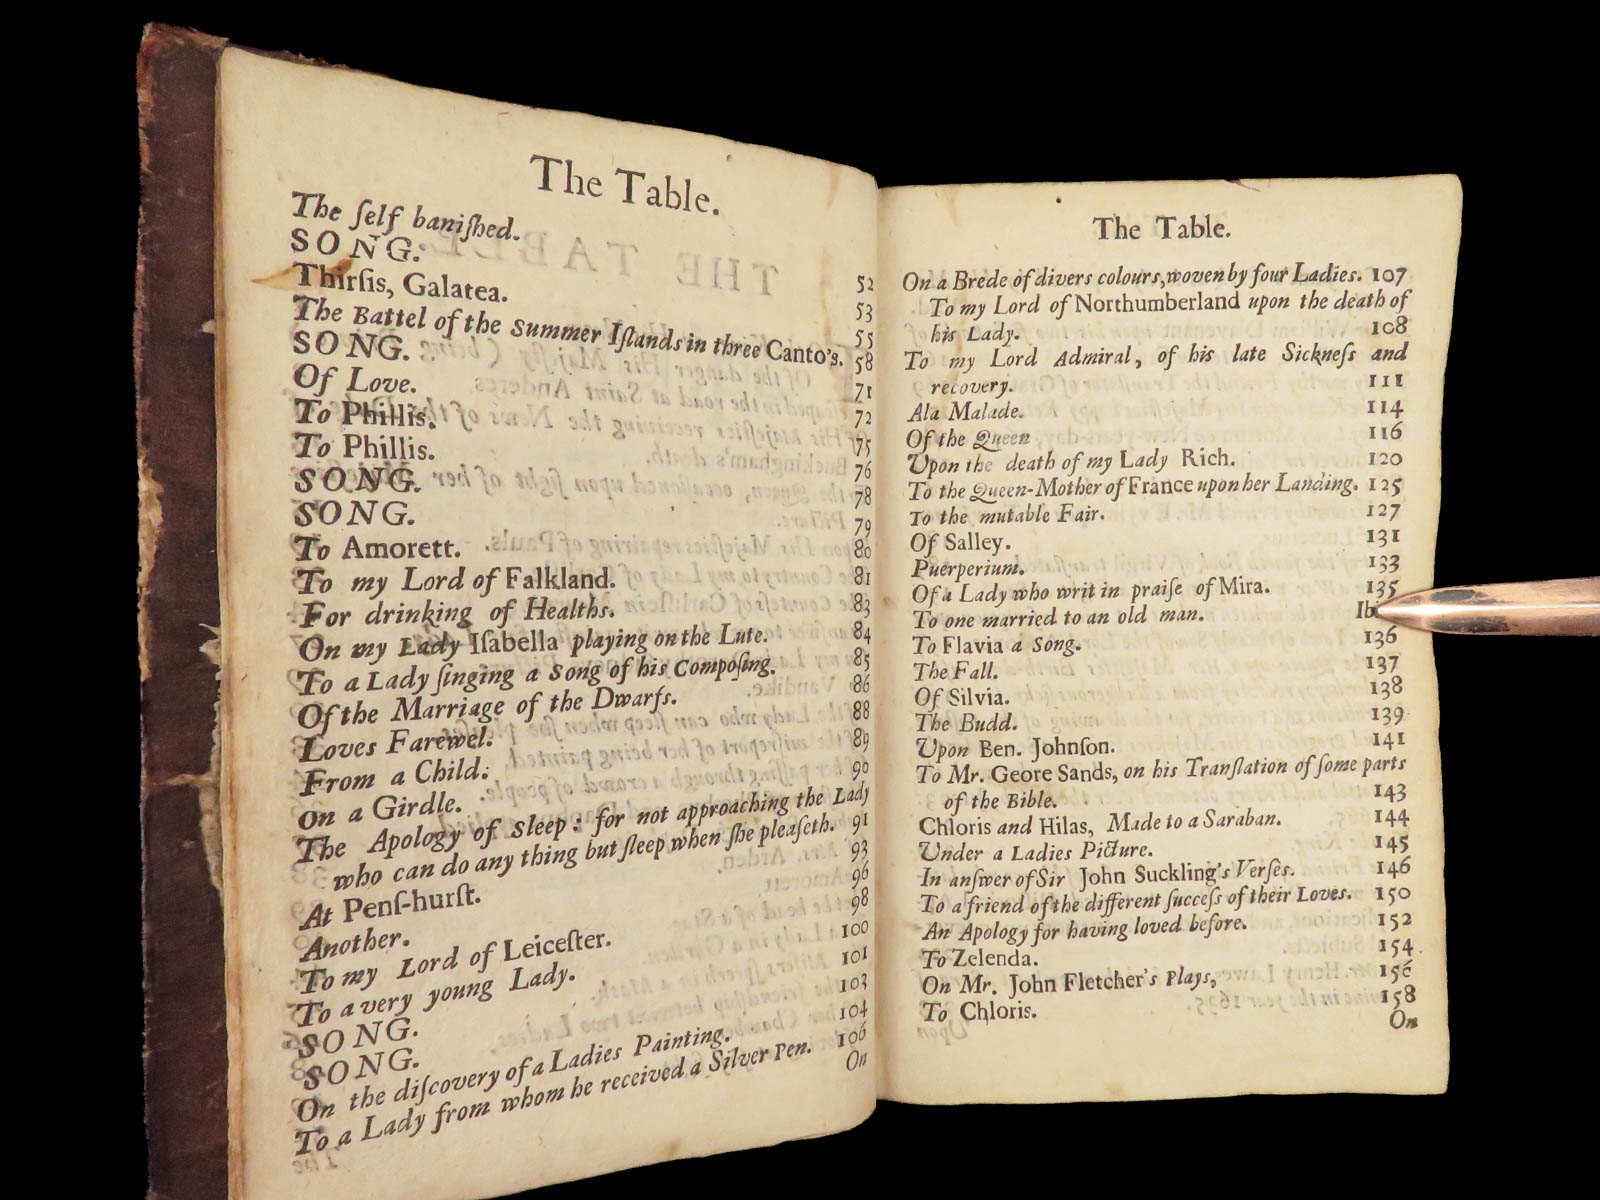 The Table.
The ſelf baniſhed. 52
SONG. 53
Thirſis, Galatea. 55
The Battel of the Summer Iſlands in three Canto's. 58
SONG. 71
Of Love. 72
To Phillis. 75
To Phillis. 76
SONG. 78
SONG. 79
To Amorett. 80
To my Lord of Falkland. 81
For drinking of Healths. 83
On my Lady Iſabella playing on the Lute. 84
To a Lady ſinging a Song of his Compoſing. 85
Of the Marriage of the Dwarfs. 86
Loves Farewel. 88
From a Child: 89
On a Girdle. 90
The Apology of Sleep: for not approaching the Lady
who can do any thing but ſleep when ſhe pleaſeth. 91
At Penſ-hurſt. 93
Another. 96
To my Lord of Leiceſter. 98
To a very young Lady. 100
SONG. 101
SONG. 103
On the diſcovery of a Ladies Painting. 104
To a Lady from whom he received a Silver Pen. 106
On
The Table.
On a Brede of divers colours, woven by four Ladies. 107
To my Lord of Northumberland upon the death of
his Lady. 108
To my Lord Admiral, of his late Sickneſs and
recovery. 111
Ala Malade. 114
Of the Queen 116
Upon the death of my Lady Rich. 120
To the Queen-Mother of France upon her Landing. 125
To the mutable Fair. 127
Of Salley. 131
Puerperium. 133
Of a Lady who writ in praiſe of Mira. 135
To one married to an old man. Ib
To Flavia a Song. 136
The Fall. 137
Of Silvia. 138
The Budd. 139
Upon Ben. Johnſon. 141
To Mr. Geore Sands, on his Tranſlation of ſome parts
of the Bible. 143
Chloris and Hilas, Made to a Saraban. 144
Under a Ladies Picture. 145
In anſwer of Sir John Suckling's Verſes. 146
To a friend of the different ſucceſs of their Loves. 150
An Apology for having loved before. 152
To Zelenda. 154
On Mr. John Fletcher's Plays, 156
To Chloris. 158
On